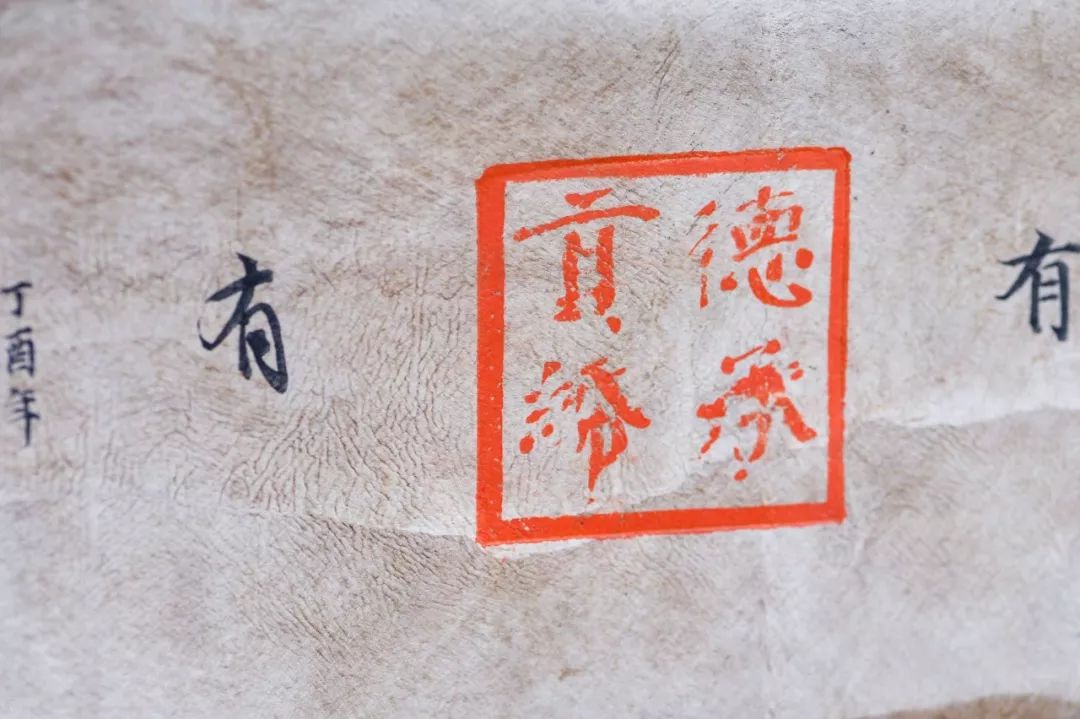 有
德承
貢
有
丁酉年